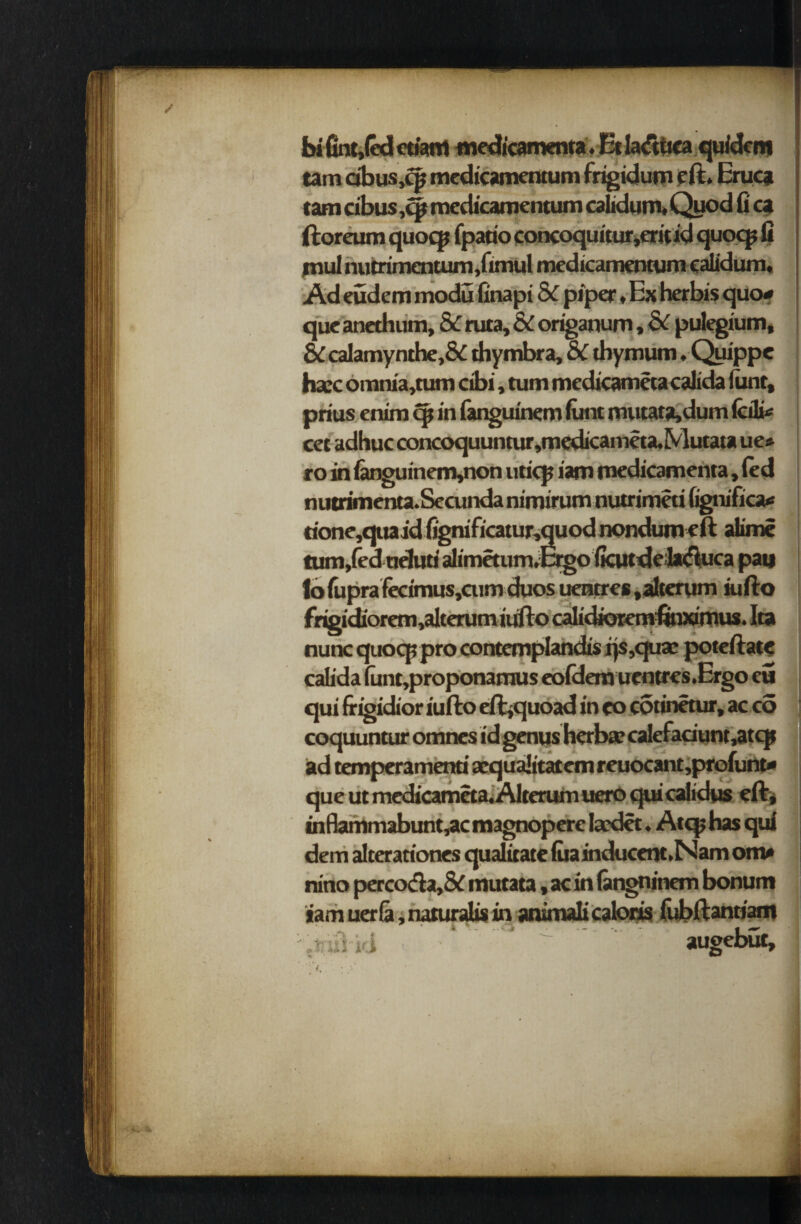 bi ſint,ſed etiam medicamenta. Et lactuca quidem
tam cibus,ꝙ medicamentum frigidum eſt. Eruca
tam cibus,ꝙ medicamentum calidum. Quod ſi ca
ſtoreum quoqꝫ ſpatio concoquitur,erit id quoqꝫ ſi
mul nutrimentum,ſimul medicamentum calidum.
Ad eūdem modū ſinapi & piper. Ex herbis quo⸗
que anethum, & ruta, & origanum, & pulegium,
& calamynthe,& thymbra, & thymum. Quippe
hæc omnia,tum cibi, tum medicamēta calida ſunt,
prius enim ꝙ in ſanguinem ſunt mutata,dum ſcili⸗
cet adhuc concoquuntur,medicamēta.Mutata ue⸗
ro in ſanguinem,non utiqꝫ iam medicamenta, ſed
nutrimenta.Secunda nimirum nutrimēti ſignifica⸗
tione,qua id ſignificatur,quod nondum eſt alimē
tum,ſed ueluti alimētum.Ergo ſicut de lactuca pau
lo ſupra fecimus,cum duos uentres,alterum iuſto
frigidiorem,alterum iuſto calidiorem finximus. Ita
nunc quoqꝫ pro contemplandis ijs,quæ poteſtate
calida ſunt,proponamus eoſdem uentres.Ergo eū
qui frigidior iuſto eſt,quoad in eo cōtinētur, ac cō
coquuntur omnes id genus herbæ calefaciunt,atqꝫ
ad temperamenti æqualitatem reuocant,proſunt⸗
que ut medicamēta.Alterum uero qui calidus eſt,
inflammabunt,ac magnopere lædēt. Atqꝫ has qui
dem alterationes qualitate ſua inducent.Nam om⸗
nino percocta,& mutata, ac in ſangninem bonum
iam uerſa, naturalis in animali caloris ſubſtantiam
augebūt,